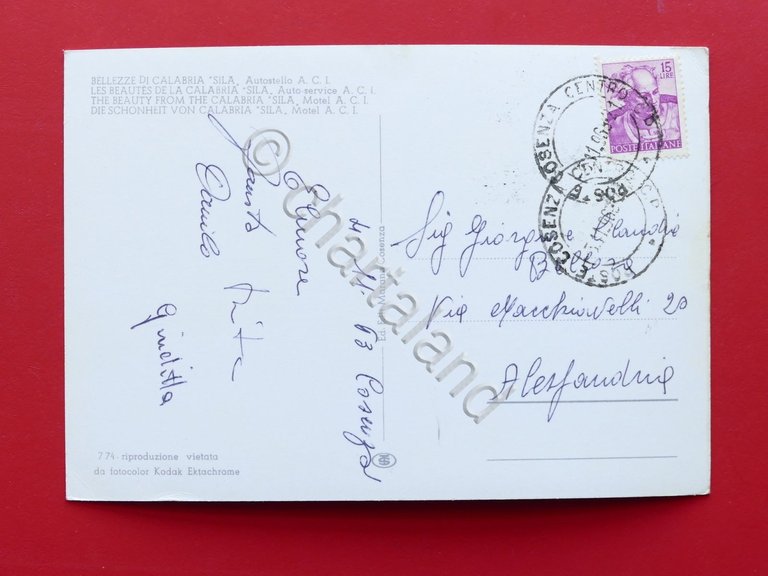 BELLEZZE DI CALABRIA "SILA, Autostello A. C. I.
LES BEAUTES DE LA CALABRIA "SILA, Auto-service A. C. I.
THE BEAUTY FROM THE CALABRIA "SILA, Motel A. C. I.
DIE SCHONHEIT VON CALABRIA "SILA, Motel A. C. I.
15
LIRE
POSTE ITALIANE
COSENZA CENTRO
4 11 63 Cosenza
Elenore
Rita
Danilo
Giuditta
Sig Giorgio
Via Macchiavelli 20
Alessandria
Ed.
Cosenza
7 74 riproduzione vietata
da fotocolor Kodak Ektachrome
© chartaland